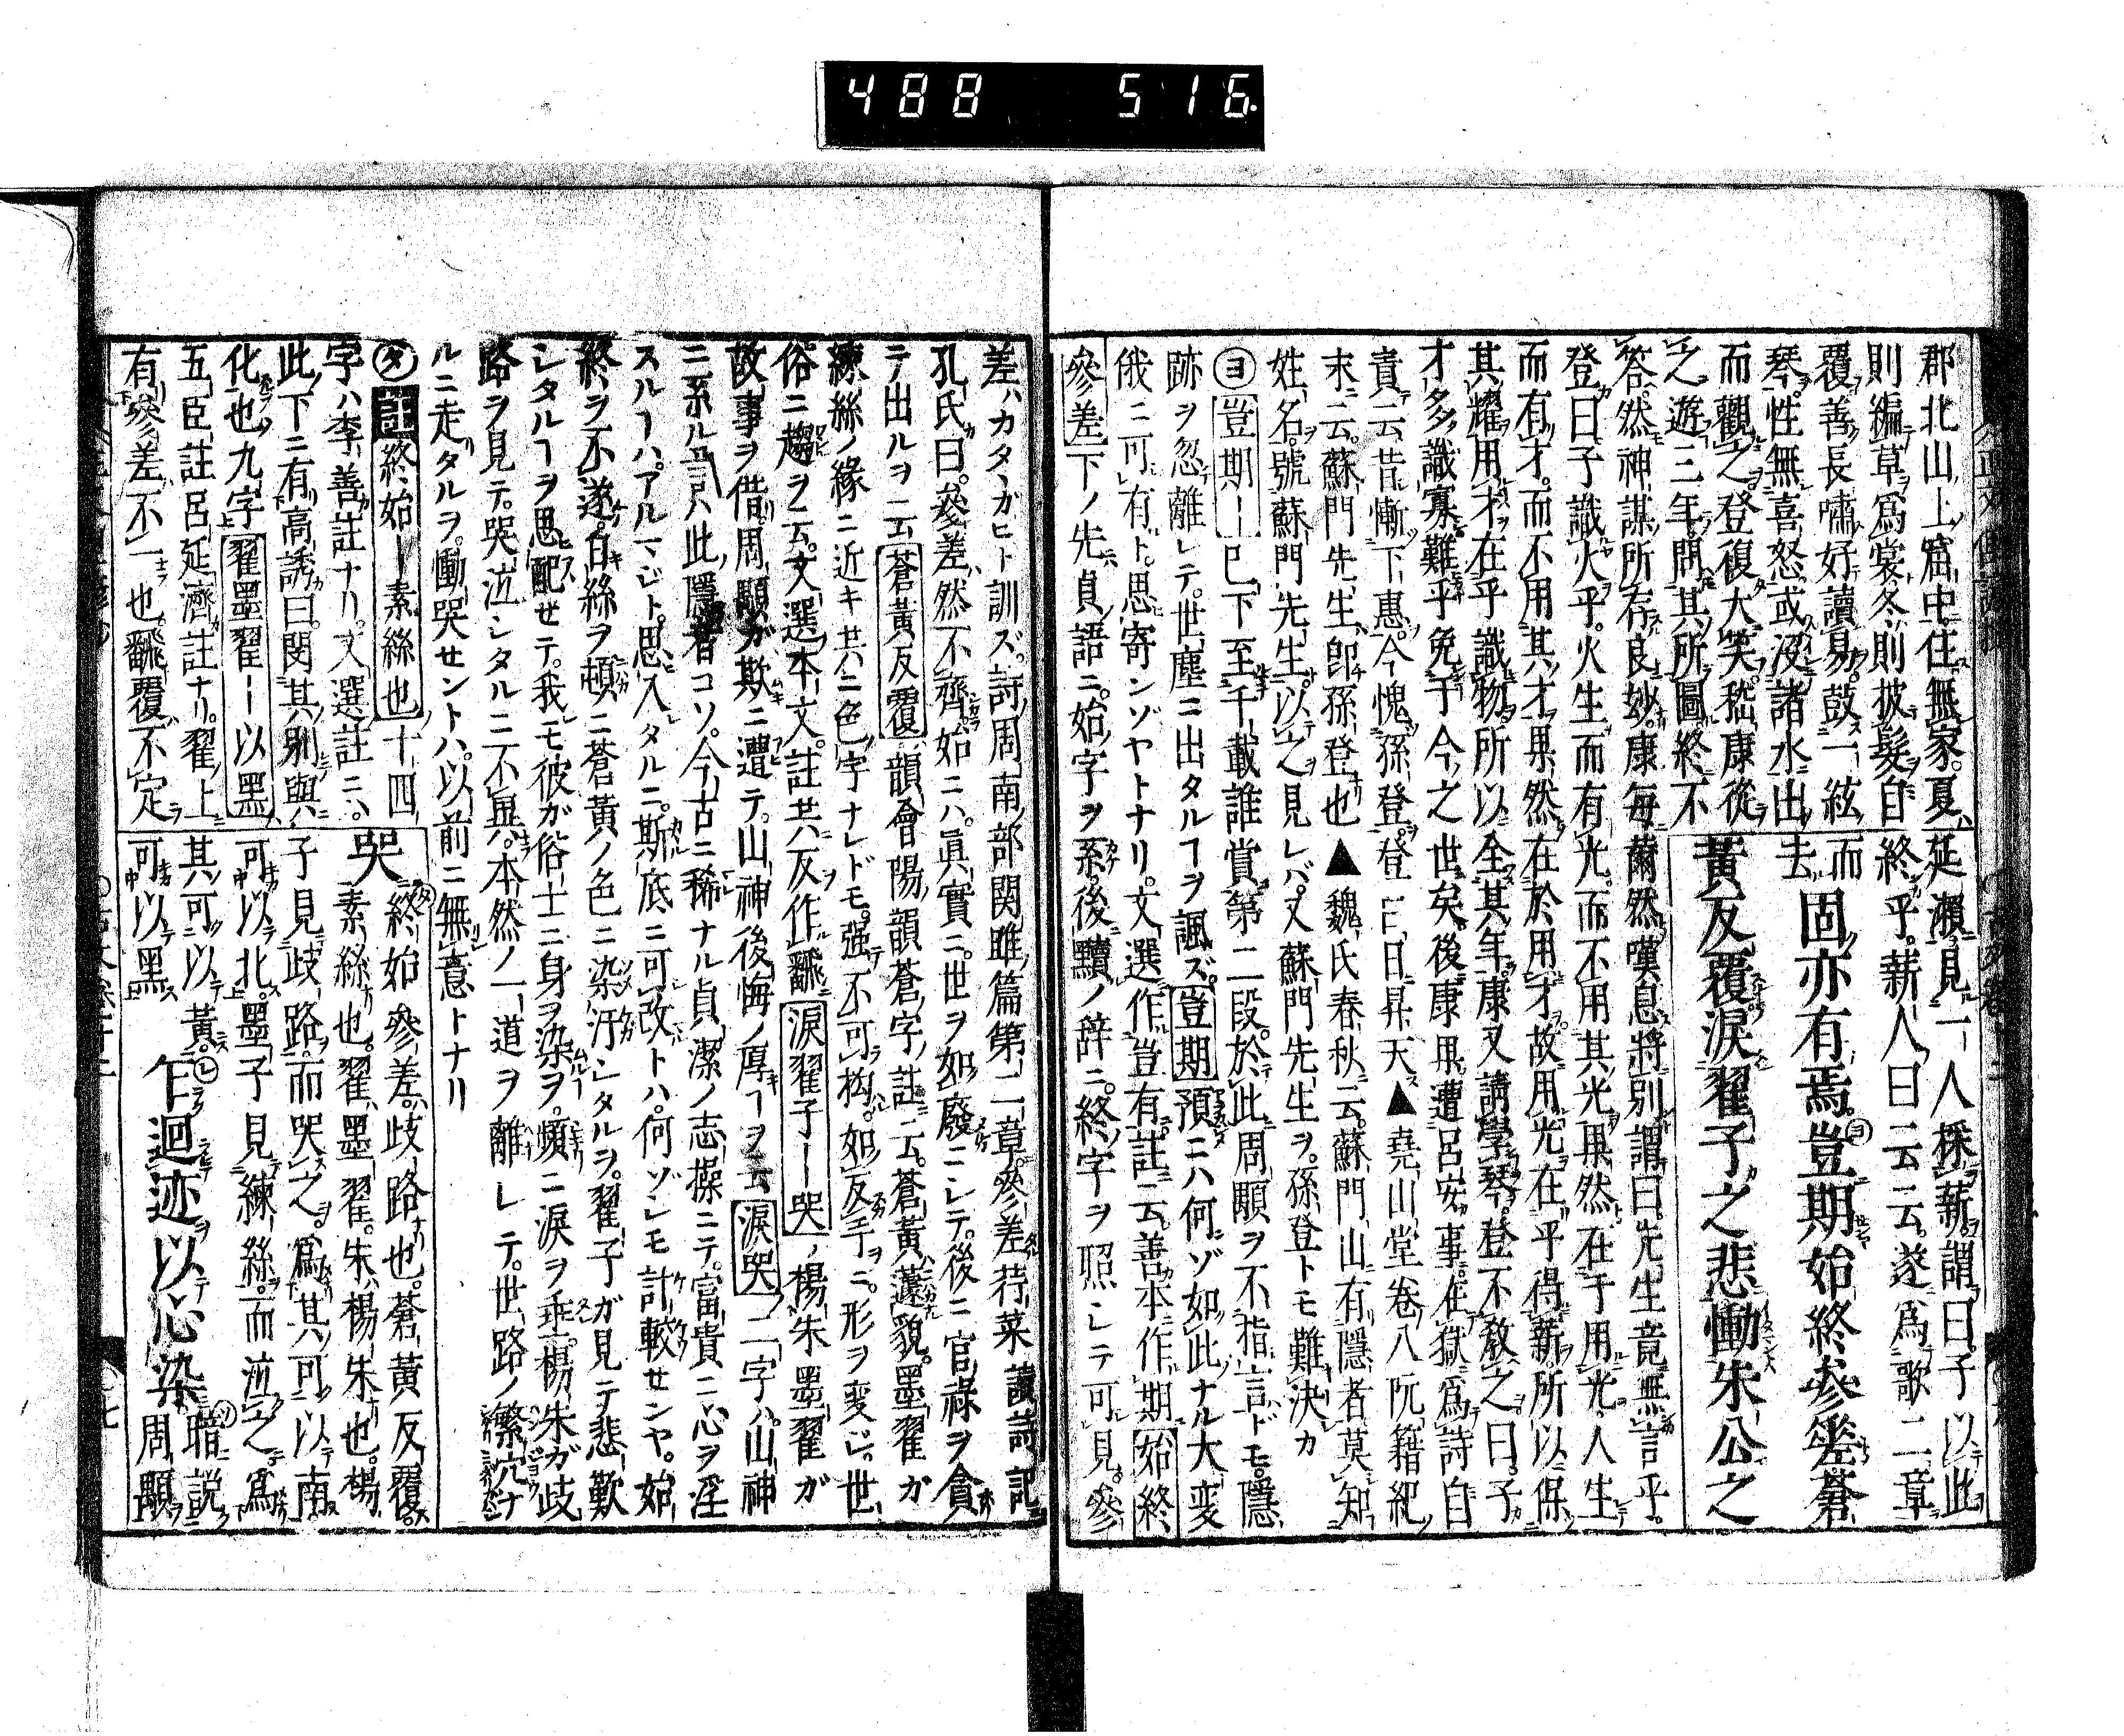 488 516
郡北山上窟中住無家夏
則編草爲裳冬則披髮自
覆善長嘯好讀易鼓一絃
琴性無喜怒或沒諸水出
而觀之登復大笑嵇康從
之遊三年問其所圖終不
延瀬見一人採薪謂曰子以此
終乎薪人曰云云遂爲歌二章
而
去固亦有焉豈期始終參差蒼
黃反覆淚翟子之悲慟朱公之
答然神謀所存良妙康每薾然嘆息將別謂曰先生竟無言乎
登曰子識火乎火生而有光而不用其光果然在于用光人生
而有才而不用其才果然在於用才故用光在乎得薪所以保
其耀用才在乎識物所以全其年康又請學琴登不教之曰子
才多識寡難乎免于今之世矣後康果遭呂安事在獄爲詩自
責云昔慚下惠今愧孫登登一日昇天▲堯山堂卷八阮籍紀
末云蘇門先生卽孫登也▲魏氏春秋云蘇門山有隱者莫知
姓名號蘇門先生以之見レバ又蘇門先生ヲ孫登トモ難決カ
ヨ豈期ー已下至千載誰賞第二段於此周顒ヲ不指言ドモ隱
跡ヲ忽離レテ世塵ニ出タルヿヲ諷ズ豈期預ニハ何ゾ如此ナル大変
俄ニ可有ト思寄ンゾヤトナリ文選作豈有註云善本作期始終
參差下ノ先貞語ニ始字ヲ系後黷ノ辞ニ終字ヲ照レテ可見參
差ハカタヽガヒト訓ズ詩周南部関雎篇第二章參差荇菜讀詩記
孔氏曰參差然不齊如ニハ眞實ニ世ヲ如廢ニレテ後ニ官祿ヲ貪
テ出ルヲニ云蒼黃反覆韻會陽韻蒼字註云蒼黃遽貌墨翟ガ
練絲ノ緣ニ近キ共ニ色字ナレドモ强不可拘如反手ヲニ形ヲ変ジ世
俗ニ趨ヲ云文選本文註共反作飜淚翟子ー哭ノ楊朱墨翟ガ
故事ヲ借周顒ガ欺ニ遭テ山神後悔ノ厚キヿヲ云淚哭ノ二字ハ山神
ニ系ル言ハ此隱者コソ今古ニ稀ナル貞潔ノ志操ニテ富貴ニ心ヲ淫
スルヿハアルマジト思入タルニ斯底ニ可改トハ何ゾレモ計較センヤ始
終ヲ不遂白絲ヲ頓ニ蒼黃ノ色ニ染汙シタルヲ翟子ガ見テ悲歎
シタルヿヲ思配セテ我モ彼ガ俗士ニ身ヲ染ヲ頻ニ淚ヲ垂楊朱ガ歧
路ヲ見テ哭泣シタルニ不異本然ノ一道ヲ離レテ世路ノ繁冗ナ
ルニ走タルヲ慟哭セントハ以前ニ無意トナリ
タ註終始ー素絲也十四
字ハ李善註ナリ文選註ニハ
此下ニ有高誘曰閔其別與
化也九字翟墨翟ー以黑
五臣註呂延濟註ナリ翟上
有參差不一也飜覆不定
哭終始參差歧路也蒼黃反覆
素絲也翟墨翟朱楊朱也楊
子見歧路而哭之爲其可以南
可以北墨子見練絲而泣之爲
其可以黃
可以黑
乍迴迹以心染
暗説
周顒